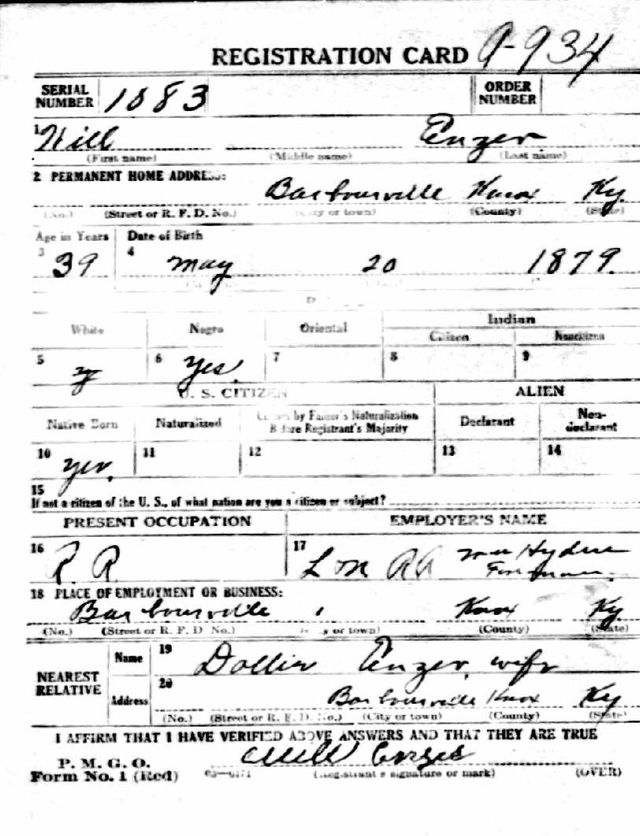 REGISTRATION CARD 9-934
SERIAL NUMBER 1083 ORDER NUMBER
1 Will Enzer
(First name) (Middle name) (Last name)
2 PERMANENT HOME ADDRESS:
Barbourville Knox Ky
(No.) (Street or R. F. D. No.) (City or town) (County) (State)
Age in Years Date of Birth
3 39 4 May 20 1879.
White Negro Oriental Indian
Citizen Noncitizen
5 6 Yes. 7 8 9
U. S. CITIZEN ALIEN
Native Born Naturalized Citizen by Father's Naturalization Before Registrant's Majority Declarant Non-declarant
10 yes. 11 12 13 14
15
If not a citizen of the U. S., of what nation are you a citizen or subject?
PRESENT OCCUPATION EMPLOYER'S NAME
16 R. R 17 L & N RR
18 PLACE OF EMPLOYMENT OR BUSINESS:
Barbourville Knox Ky
(No.) (Street or R. F. D. No.) (City or town) (County) (State)
NEAREST RELATIVE Name 19 Dollie Enzer, wife
Address 20 Barbourville Knox Ky
(No.) (Street or R. F. D. No.) (City or town) (County) (State)
I AFFIRM THAT I HAVE VERIFIED ABOVE ANSWERS AND THAT THEY ARE TRUE
P. M. G. O.
Form No. 1 (Red) 03-6171 (Registrant's signature or mark) (OVER)